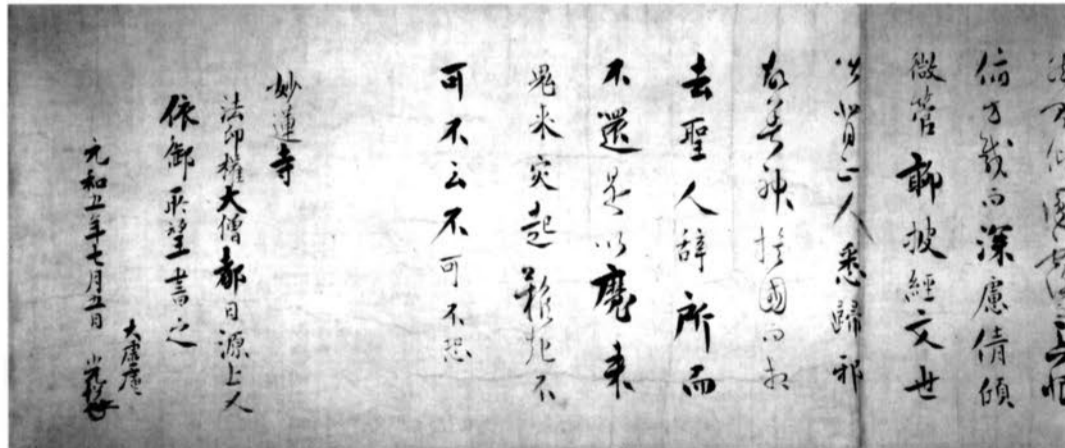 俯方載而深慮倩傾
微管聊披經文世
皆背正人悉歸邪
故善神捨國而相
去聖人辞所而
不還是以魔来
鬼来災起難起不
可不云不可不恐
妙蓮寺
法印権大僧都日源上人
依御所望書之
大虚庵
元和五年七月五日 光悦